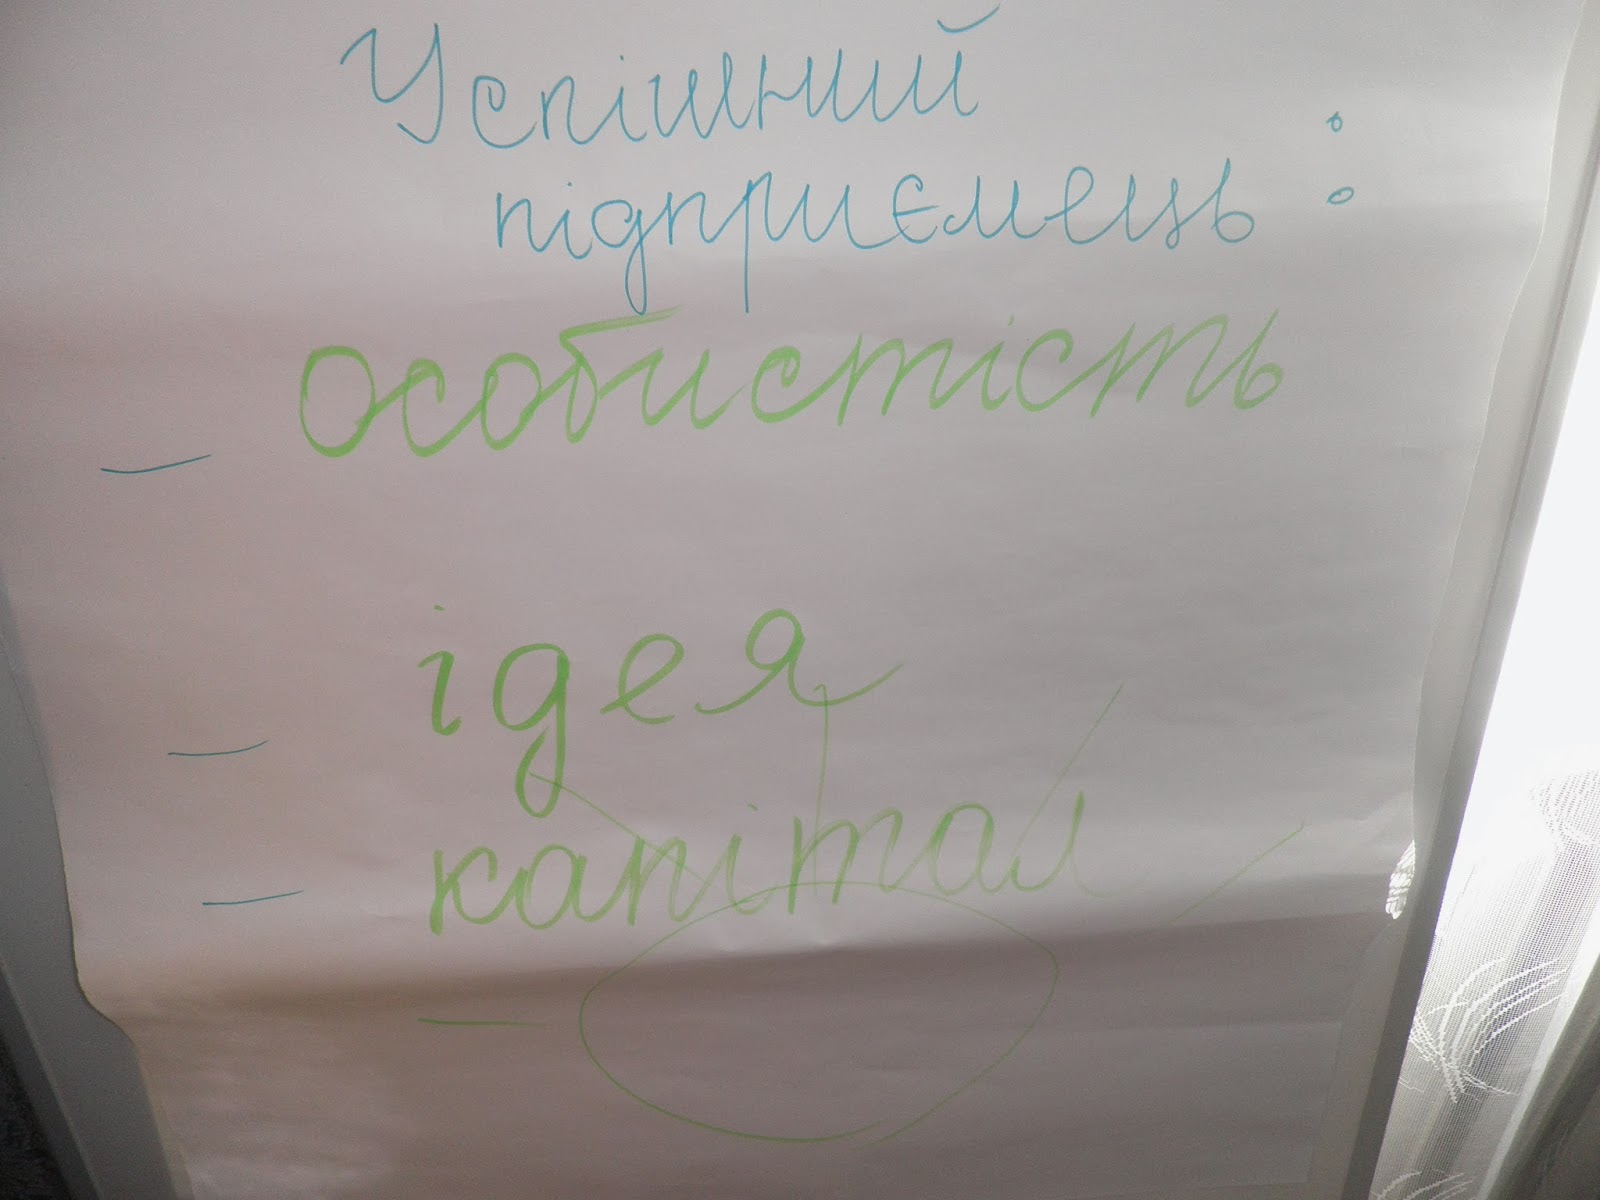 Успішний
підприємець:
- особистість
- ідея
- капітал
-